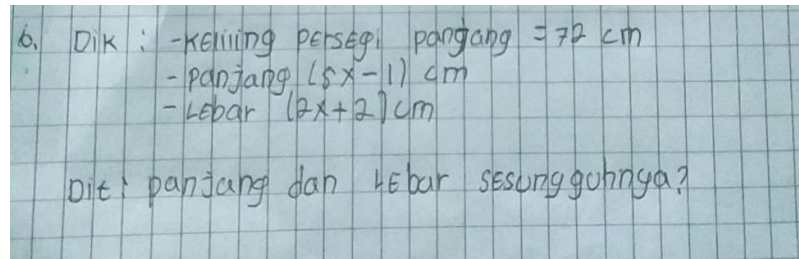 6. Dik : - Keliling persegi pangang = 72 cm
- panjang (5x-1) cm
- Lebar (2x+2) cm
Dit : panjang dan Lebar sesunggohnya?